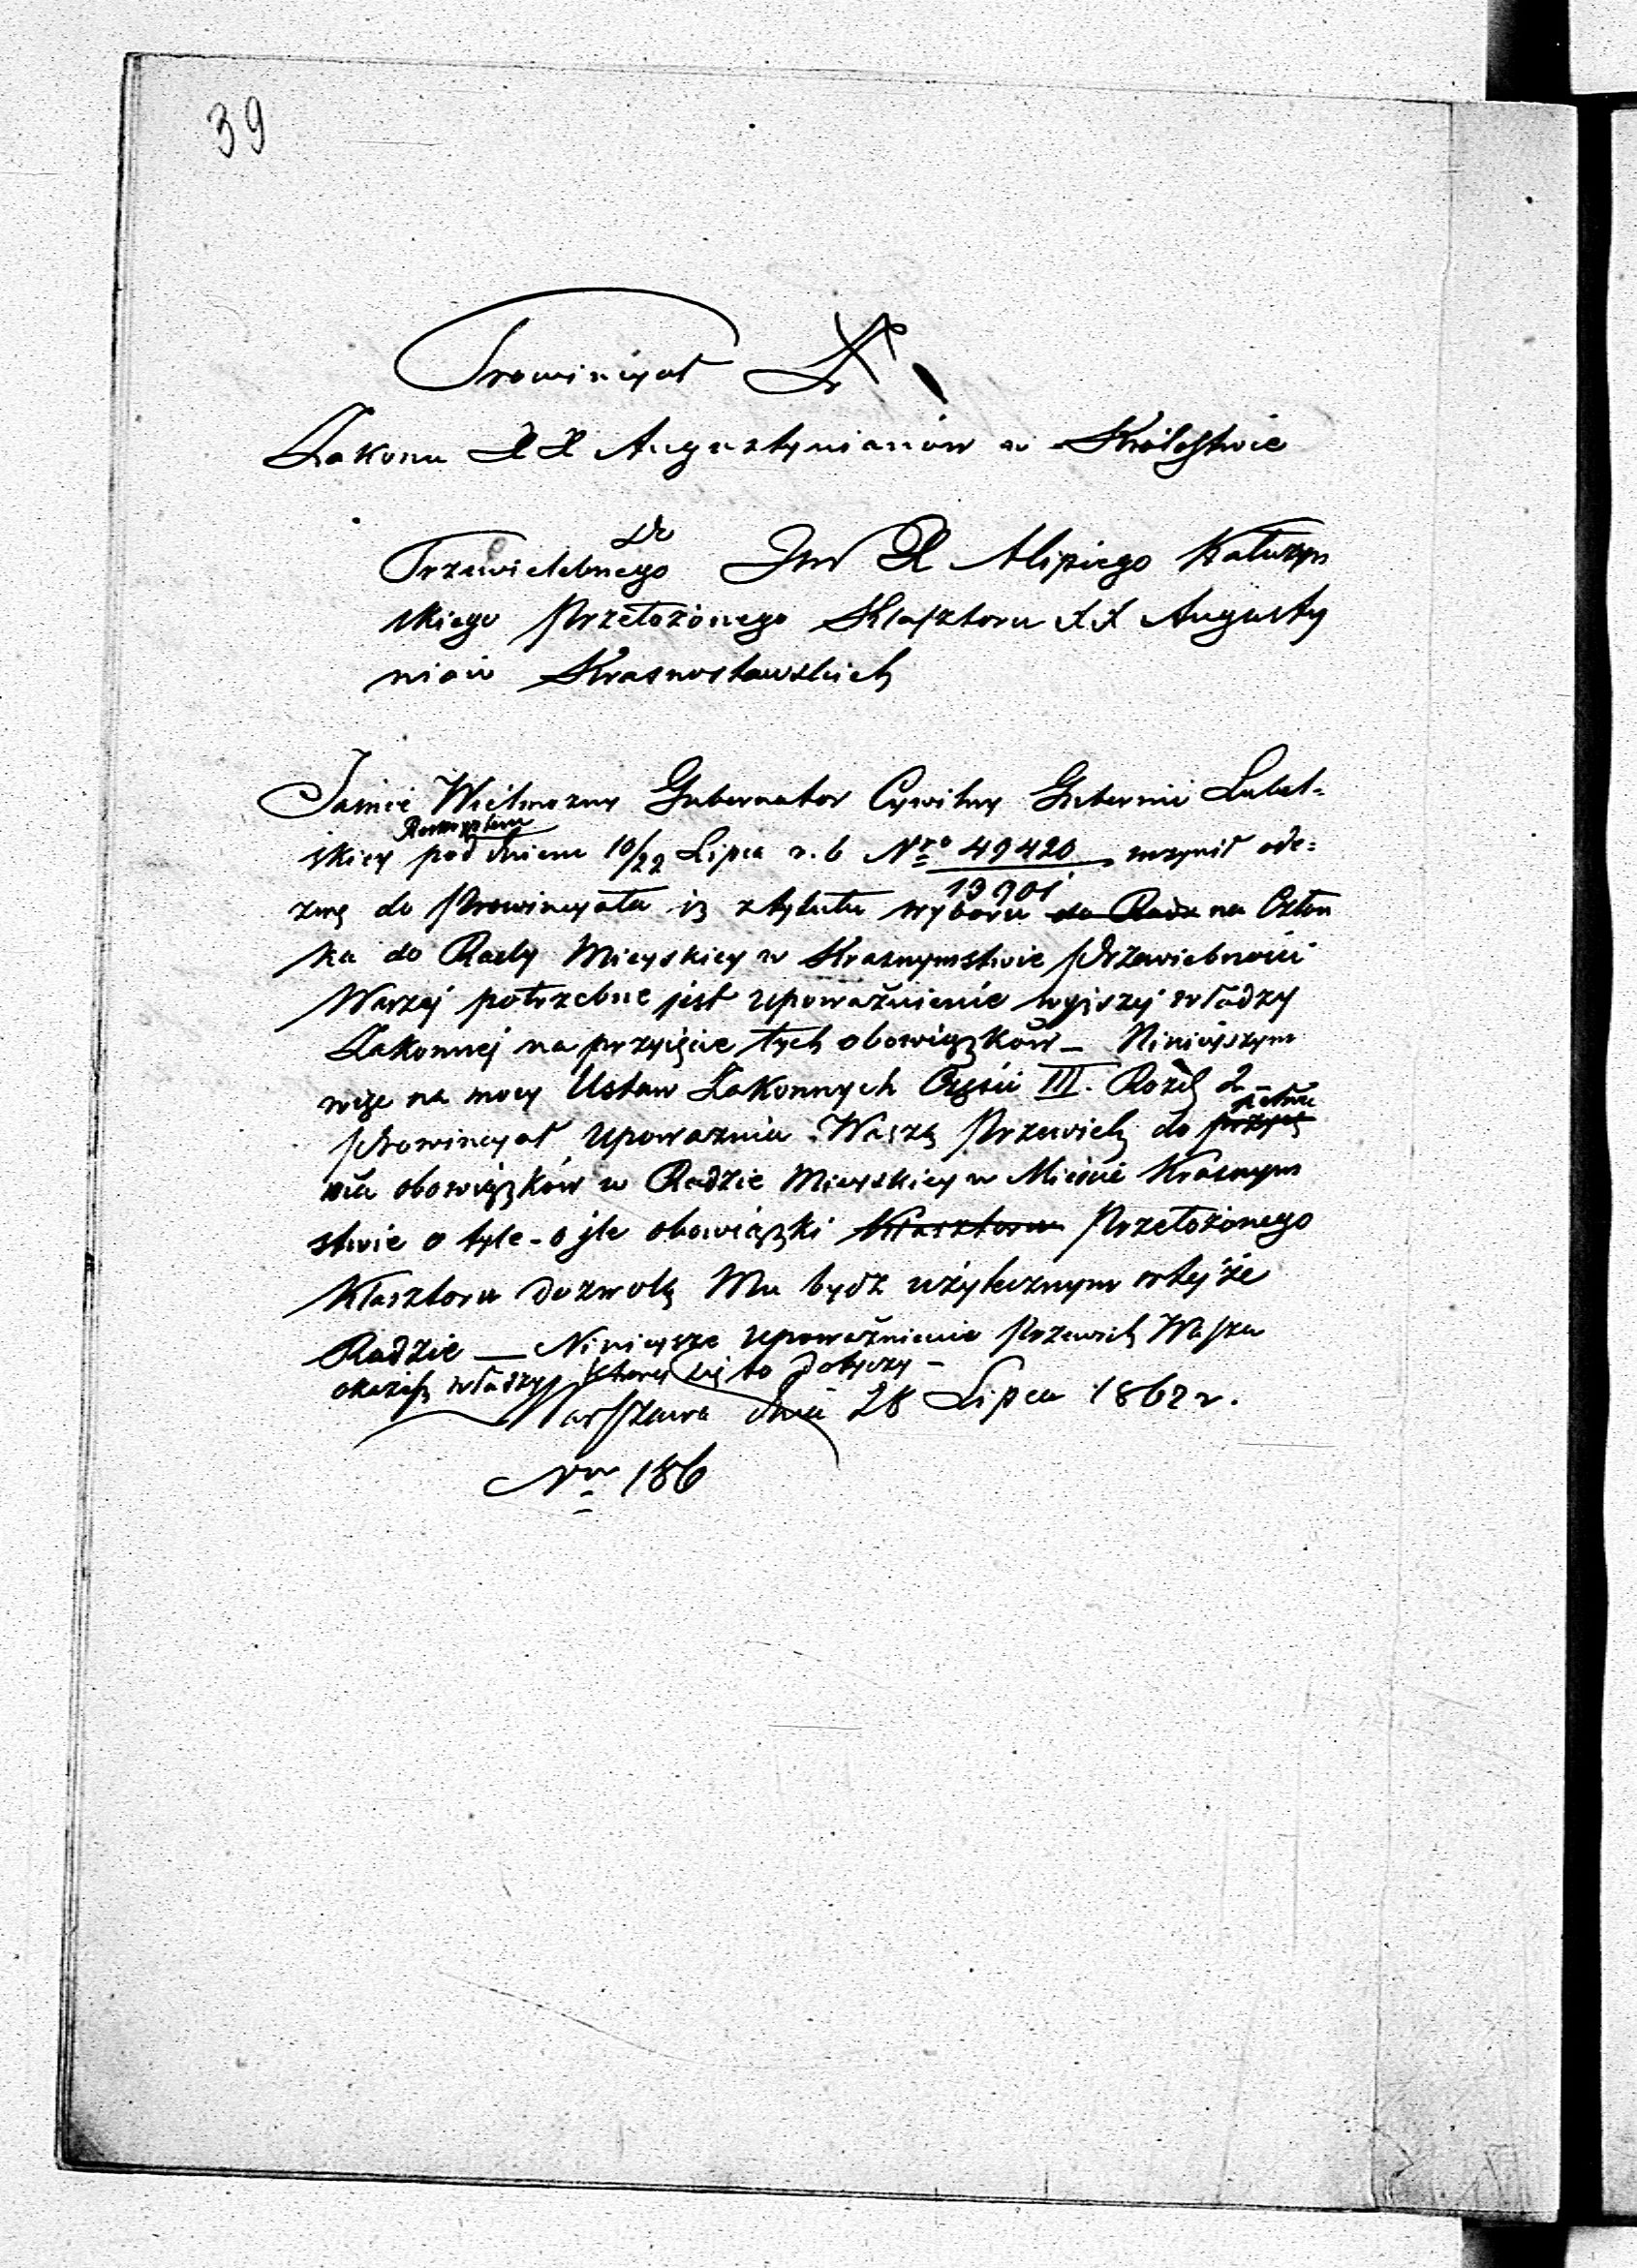 39
Prowincyał
Zakonu XX Augustynianów w Królestwie
Do
Przewielebnego JM X Alipiego Kałuzyn
skiego Przełożonego Klasztoru XX Augusty
niów Krasnostawskich
Jaśnie Wielmożny Gubernator Cywilny Gubernii Lubel-
Reskryptem
skiey pod dniem 10/22 Lipca r. b Nro 49420 uczynił ode-
13901
zwę do Prowincyała iż z tytułu wyboru do Rady na Człon
ka do Rady Mieyskiey w Krasnymstwie Przewiebności
Waszej potrzebne jest upoważnienie wyższej władzy
Zakonnej na przyięcie tych obowiązków – Niniejszym
więc na mocy Ustaw Zakonnych Części III. Rozdz 2
Prowincyał upoważnia Waszą Przewiel. do przyię
nia obowiązków w Radzie Mieyskiey w Mieście Krasnym
stwie o tyle – o jle obowiązki Klasztoru Przełożonego
Klasztoru dozwolą Mu bydź użytecznym w tejże
Radzie — Ninieysze upoważnienie Przewiel. Wasza
okaże władzy której się to dotyczy –
Warszawa dnia 28 Lipca 1862 r.
Nro 186